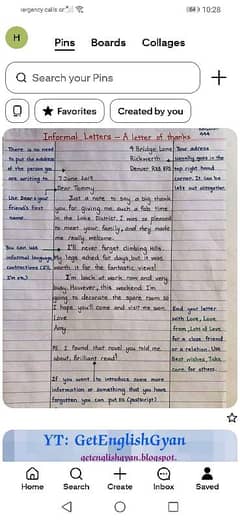 ergency calls or
10:28
H
Pins Boards Collages
Search your Pins
Favorites
Created by you
Informal Letters - A letter of thanks
There is no need
to put the address
of the person you
are writing to.
Use Dear + your
friend's first
name.
You can use
informal language,
contractions (I'll
I'm etc.)
9 Bridge Lane
Rickworth
Denver
7 June 2019
Dear Tommy,
Just a note to say a big thank
you for giving me such a fab time
in the Lake District. I was so pleased
to meet your family, and they made
me really welcome.
I'll never forget climbing hills.
My legs ached for days, but it was
worth it for the fantastic views!
I'm back at work now and very
busy. However, this weekend I'm
going to decorate the spare room so
I hope you'll come and visit me soon.
Love
Amy
PS. I found that novel you told me
about. Brilliant read!
If you want to introduce some more
information or something that you have
forgotten you can put PS (postscript)
Your address
usually goes in the
top right hand
corner. It can be
left out altogether.
End your letter
with Love, Love
from, Lots of Love
for a close friend
or a relation. Use
Best wishes, Take
care for others.
YT: GetEnglishGyan
getenglishgyan.blogspot.
Home
Search
Create
Inbox
Saved